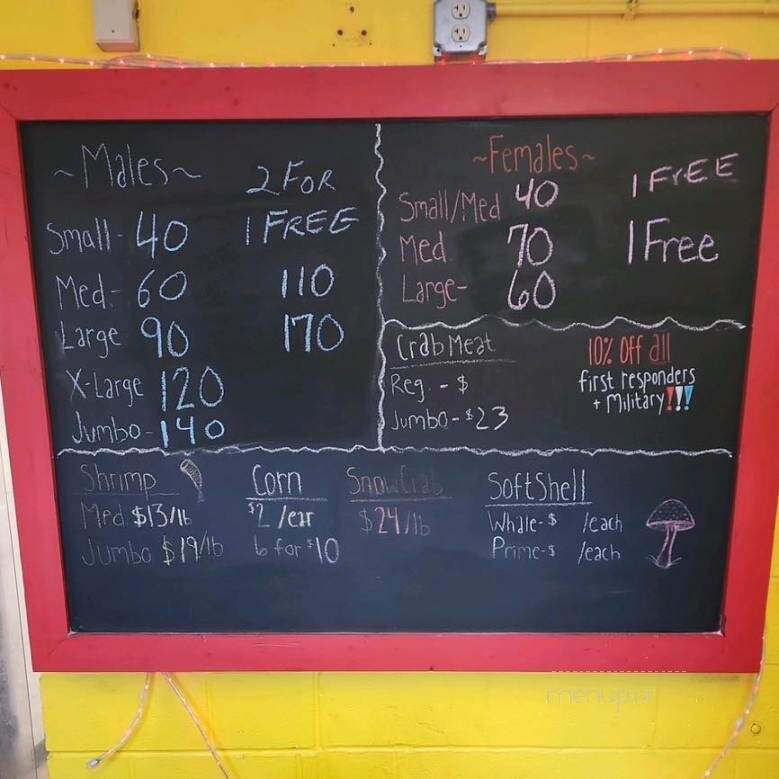 ~Males~
2 FOR
Small - 40 1 FREE
Med. - 60 110
Large 90 170
X-Large 120
Jumbo - 140
~Females~
Small/Med 40 1 FrEE
Med. 70 1 Free
Large - 60
Crab Meat
Reg. - $
Jumbo - $23
10% Off all
first responders
+ Military!!!!
Shrimp
Med $13/lb
Jumbo $19/lb
Corn
$2 /ear
6 for $10
Snow Crab
$24/lb
SoftShell
Whale - $ /each
Prime - $ /each
menupix